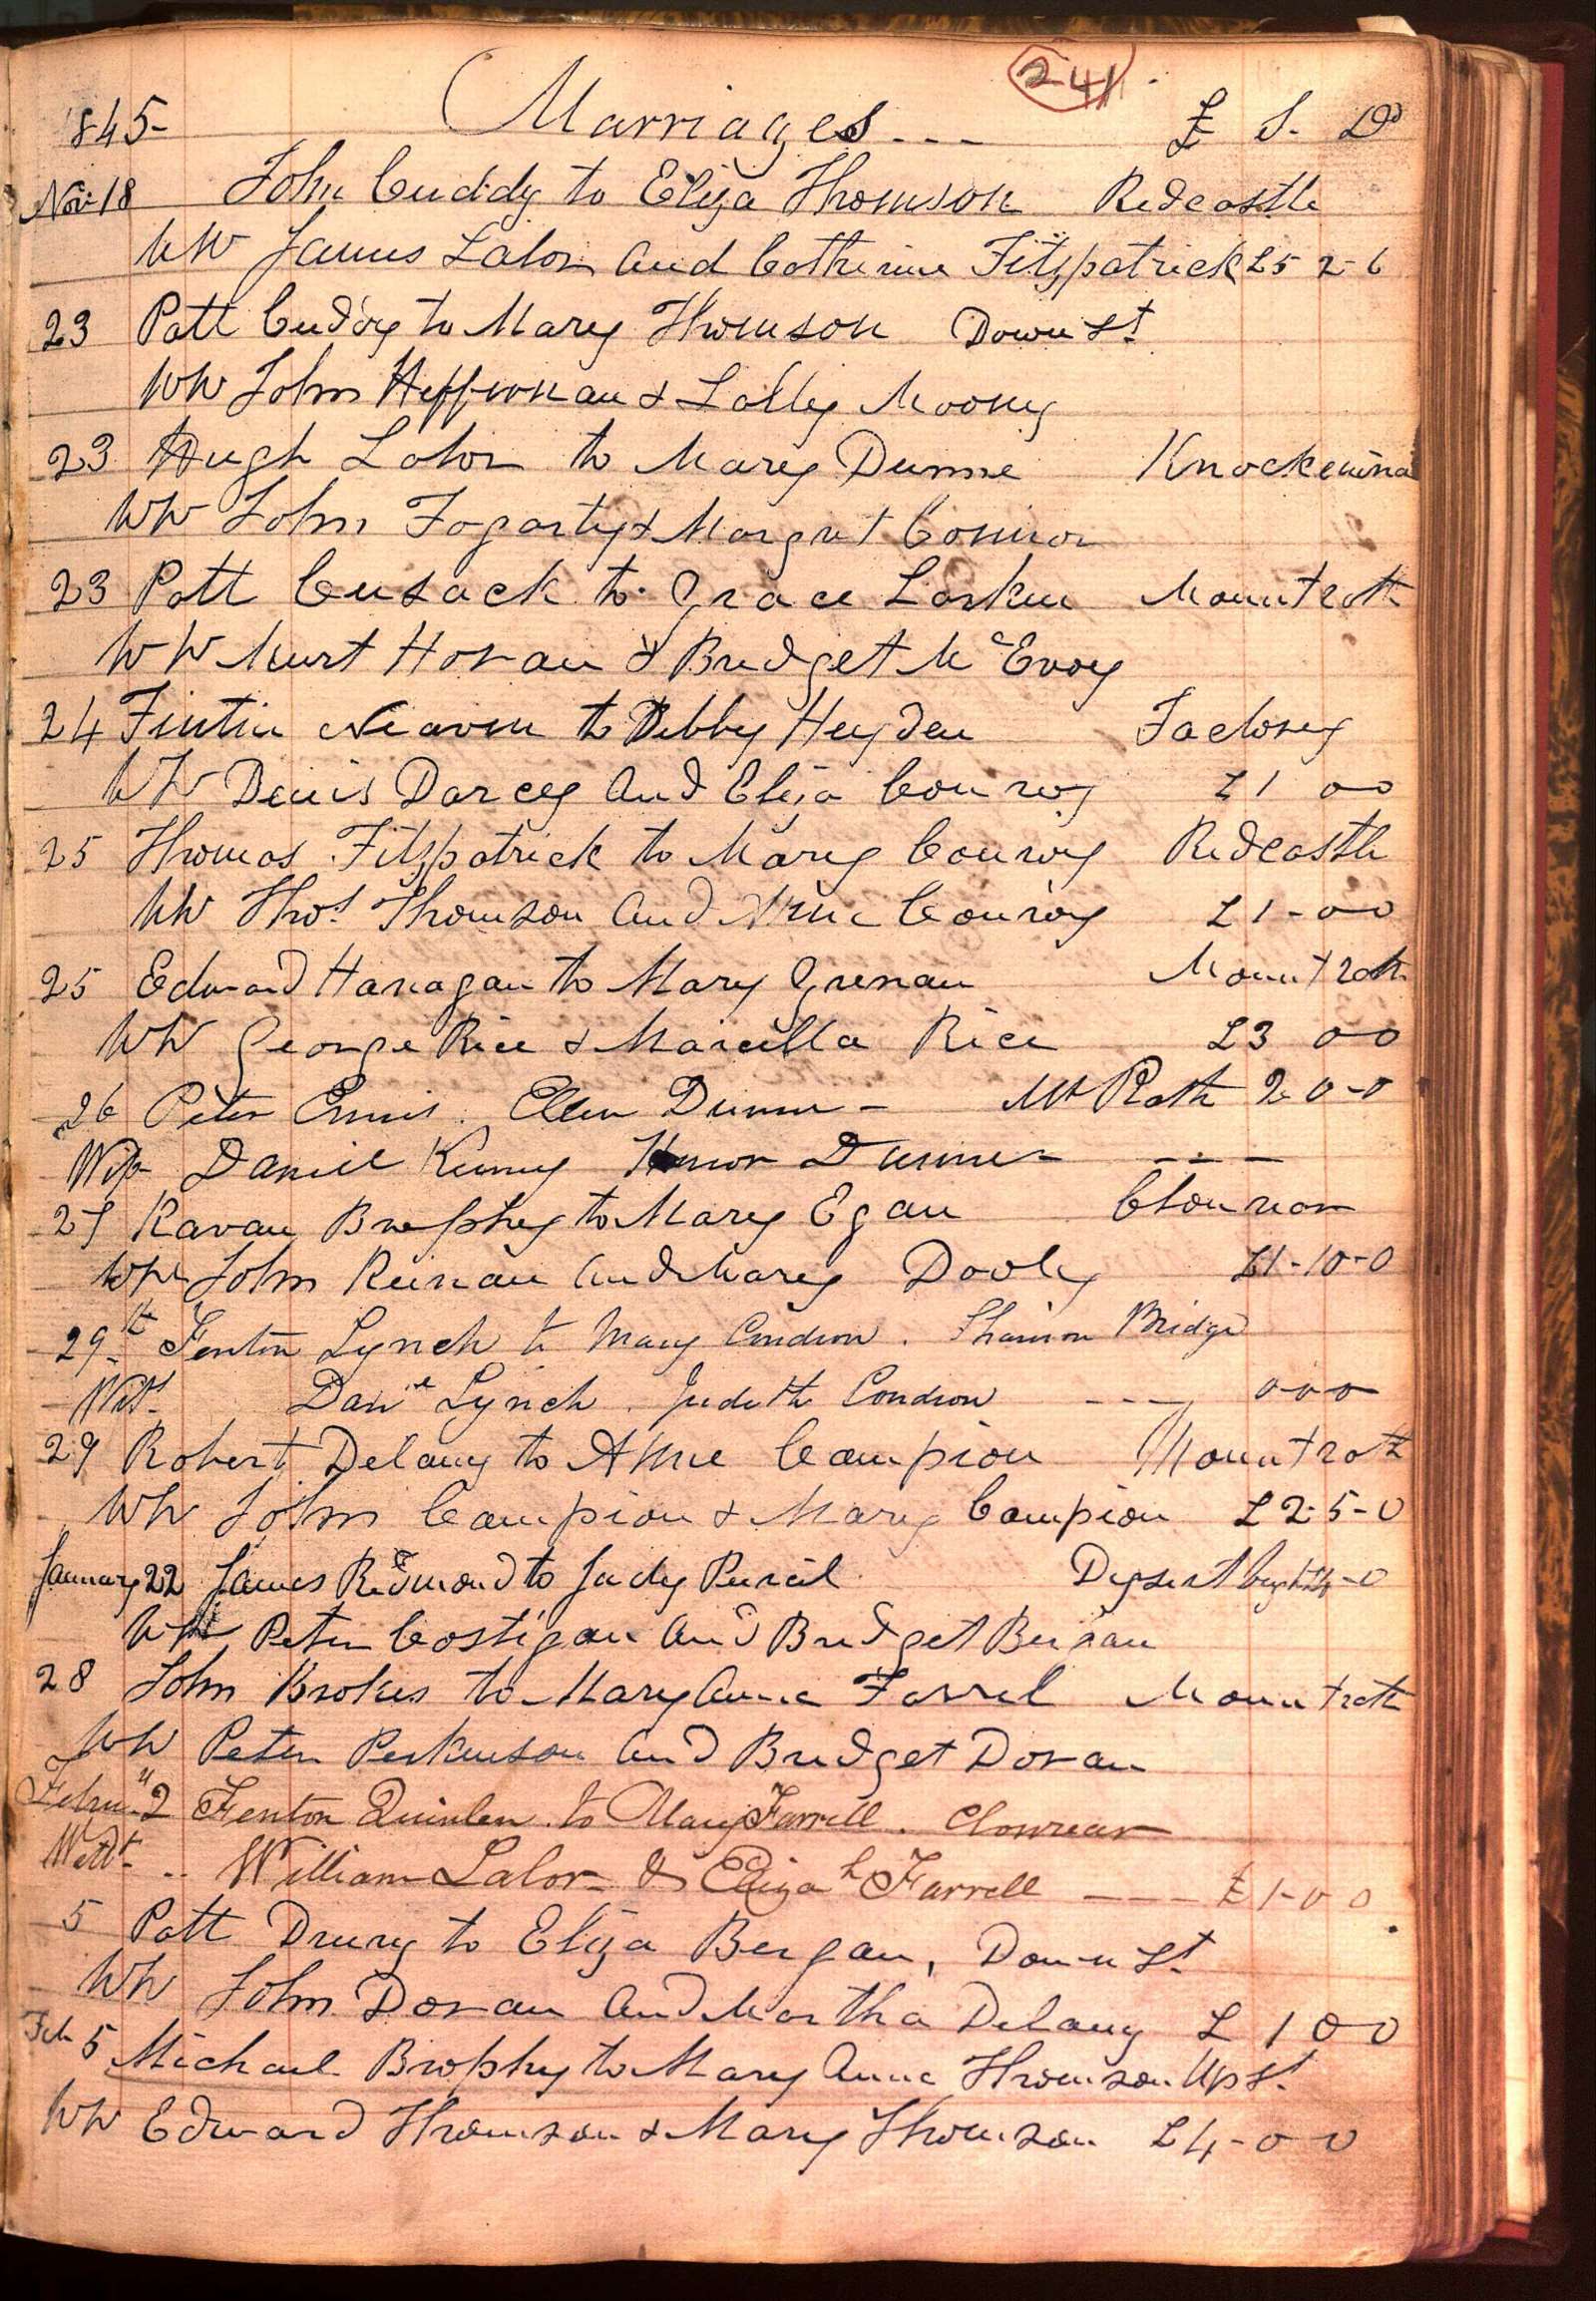 241
1845- Marriages --- £ S. D
Nov 18 John Cuddy to Eliza Thomson Redcastle
WW James Lalor and Catherine Fitzpatrick £5 2-6
23 Patt Cuddy to Mary Thomson Down St
WW John Heffernan & Lally Moony
23 Hugh Lalor to Mary Dunne Knockenina
WW John Fogarty & Margret Connor
23 Patt Cusack to Grace Larken Mountrath
WW Murt Horan & Bridget McEvoy
24 Fintin Neaven to Debby Heyden Factory
WW Denis Darcey and Eliza Conroy £1 00
25 Thomas Fitzpatrick to Mary Conroy Redcastle
WW Thos Thomson and Anne Conroy £1-00
25 Edward Hanagan to Mary Grenan Mountrath
WW George Rice & Marcella Rice £3 00
26 Peter Ennis. Ellen Dunne - Mt Rath 2 0-0
Daniel Kenny Honor Dunne - ---
27 Kavan Brophy to Mary Egan Clonrear
WW John Keenan and Mary Dooly £1-10-0
29th Fenton Lynch to Mary Condron. Shannon Bridge
Wits Danl Lynch. Judith Condron --- 0-0-0
29 Robert Delany to Anne Campion Mountrath
WW John Campion & Mary Campion £2-5-0
January 22 James Redmond to Judy Purcil
WW Peter Costigan and Bridget Bergan
28 John Brokes to Mary Anne Farrel Mountrath
WW Peter Perkinson and Bridget Doran
2 Fenton Quinlen. to Mary Farrell. Clonrear
William Lalor - & Elizah Farrell --- £1-0 0
5 Patt Drury to Eliza Bergan, Down St
WW John Doran and Martha Delany £ 1 0 0
Feb 5 Michael Brophy to Mary Anne Thomson Up St
WW Edward Thomson & Mary Thomson £4-0 0